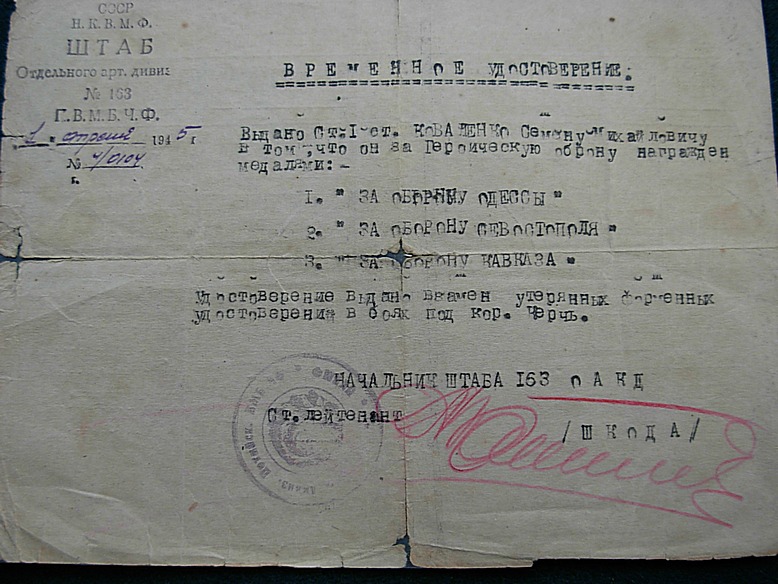 СССР
Н.К.В.М.Ф.
ШТАБ
Отдельного арт. дивиз
№ 163
Г.В.М.Б.Ч.Ф.
"1" апреля 1945 г.
№ 4/0104
г.
ВРЕМЕННОЕ УДОСТОВЕРЕНИЕ:
Выдано Ст.1 ст. КОВАЛЕНКО Семену Михайловичу
в том,что он за Героическую оброну награжден
медалями:-
1. " ЗА ОБОРОНУ ОДЕССЫ "
2. " ЗА ОБОРОНУ СЕВОСТОПОЛЯ "
3. " ЗА ОБОРОНУ КАВКАЗА "
Удостоверение выдано взамен утерянных форменных
удостоверения в боях под кор. Черчь.
НАЧАЛЬНИК ШТАБА 163 ОАКД
Ст. лейтенант
/ШКОДА/